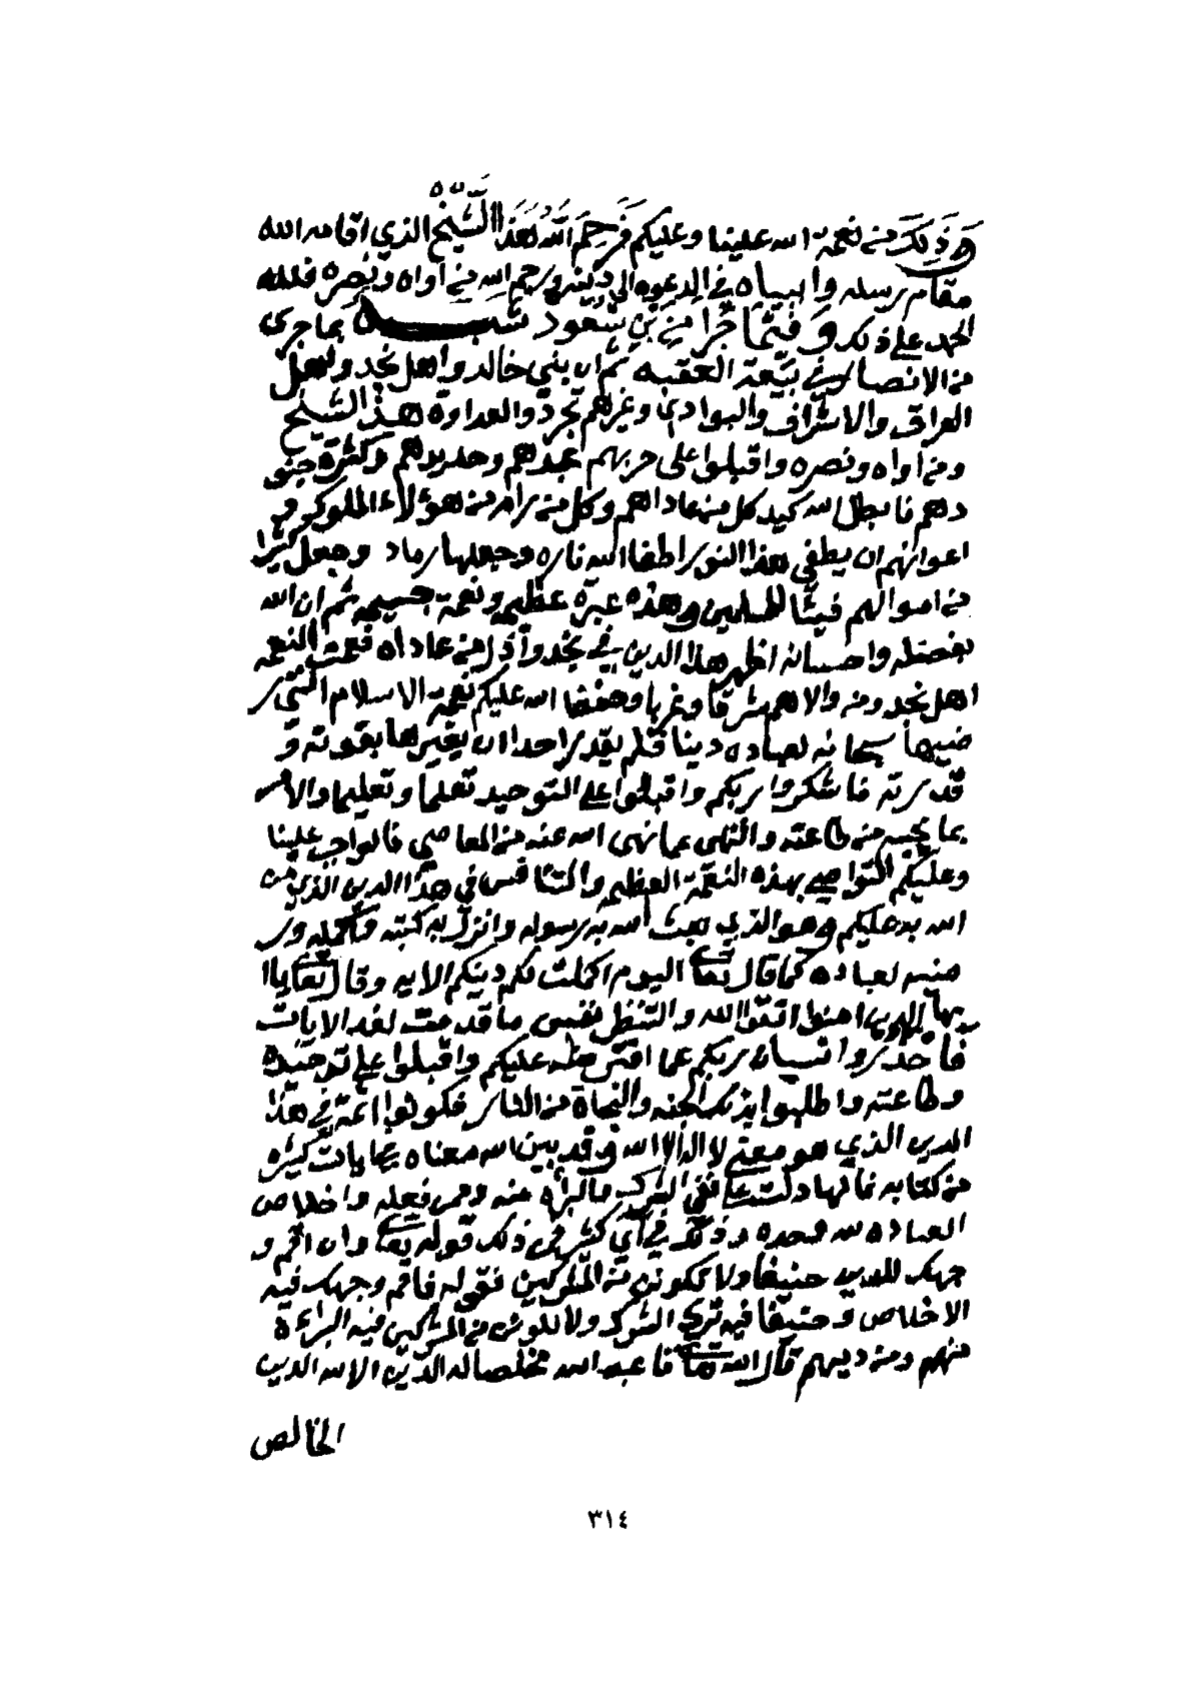 وذلك من نعمة الله علينا وعليكم فرحم الله هذا الشيخ الذي اقامه الله
مقام رسله وانبياه في الدعوه الى دينه ورحم الله من آواه ونصره فلله
الحمد على ذلك وفيما جرا من بن سعود شبه بما جرى
من الانصار في بيعة العقبه ثم ان بني خالد واهل نجد واهل
العراق والاشراف والبوادي وغيرهم تجردوا لعداوة هذا الشيخ
ومن آواه ونصره واقبلوا على حربهم بحدهم وحديدهم وكثرة جنو
دهم فابطل الله كيد كل من عاداهم وكل من رام من هؤلاء الملوك و
اعوانهم ان يطفي هذا النور اطفا الله ناره وجعلها رماد وجعل كثيرا
من اموالهم فيئا للمسلمين وهذه عبرة عظيمه ونعمة جسيمه ثم ان الله
بفضله واحسانه اظهر هذا الدين في نجد واذل من عاداه فعمت النعمه
اهل نجد ومن والاهم شرقا وغربا وحفظ الله عليكم نعمة الاسلام التي ر
ضيها سبحانه لعباده دينا فلم يقدر احدا ان يغيرها بقوته و
قدرته فاشكروا ربكم واقبلوا على التوحيد تعلما وتعليما والامر
بما يحبه من طاعته والنهي عما نهى الله عنه من المعاصي فالواجب علينا
وعليكم التواصي بهذه النعمة العظيمه والتنافس في هذا الدين الذي من
الله به عليكم وهو الذي بعث الله به رسوله وانزل به كتبه واكمله ور
ضيه لعباده كما قال تعا اليوم اكملت لكم دينكم الايه وقال تعا ياا
يها الذين امنوا اتقوا الله والتنظر نفس ما قدمت لغد الايات
فاحذروا نسيان ربكم عما افترضه عليكم واقبلوا على توحيده
وطاعته واطلبوا بذلك الجنه والنجاة من النار فكونوا ائمة في هذا
الدين الذي هو معنى لا اله الا الله وقد بين الله معناه بايات كثيره
من كتابه فانها دلت على نفي الشرك والبرأه عنه وممن فعله واخلاص
العباده لله وحده وذلك في آي كثير فمن ذلك قوله تعا وان اقم و
جهك للدين حنيفا ولا تكونن من المشركين فقوله فاقم وجهك فيه
الاخلاص وحنيفا فيه ترك الشرك ولا تكونن من المشركين فيه البراءة
منهم ومن دينهم قال الله تعا فاعبد الله مخلصا له الدين الا لله الدين
الخالص
٣١٤